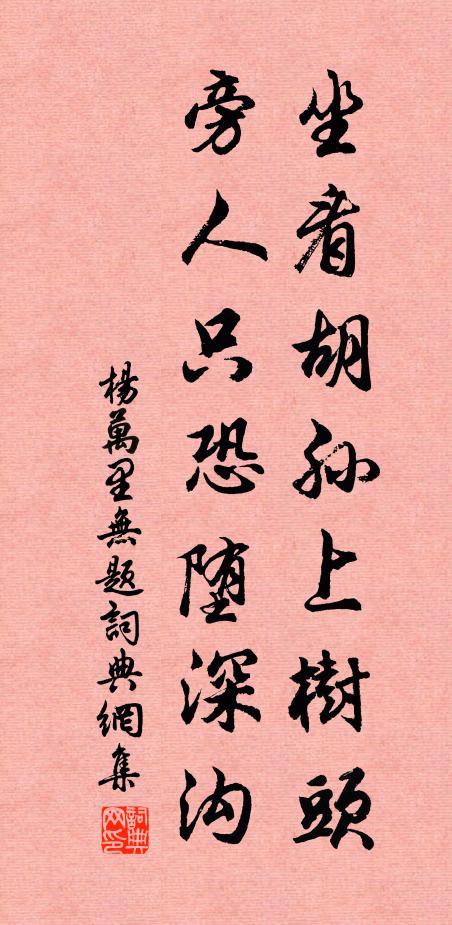 坐看胡孙上樹頭
旁人只恐堕深沟
楊萬里無題詞典網集
詞典网印